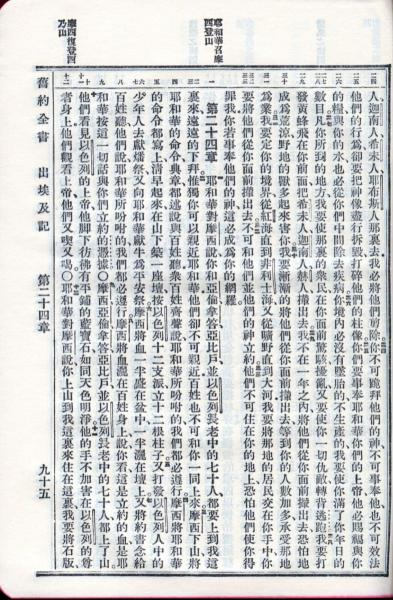 耶和華召摩西登山
人迦南人希未人耶布斯人那裏去我必將他們剪除你不可跪拜他們的神不可事奉他也不可效法
他們的行爲卻要把神像盡行拆毀打碎他們的柱像你們要事奉耶和華你們的上帝他必賜福與你
的糧與你的水也必從你們中間除去疾病你境內必沒有墜胎的不生產的我要使你滿了你年日的
數目凡你所到的地方我要使那裏的衆民在你面前驚駭擾亂又要使你一切仇敵轉背逃跑我要打
發黃蜂飛在你前面把希未人迦南人赫人攆出去我不在一年之內將他們從你面前攆出去恐怕地
成爲荒涼野地的獸多起來害你我要漸漸的將他們從你面前攆出去等到你的人數加多承受那地
爲業我要定你的境界從紅海直到非利士海又從曠野直到大河我要將那地的居民交在你手中你
要將他們從你面前攆出去不可和他們並他們的神立約他們不可住在你的地上恐怕他們使你得
罪我你若事奉他們的神這必成爲你的網羅
第二十四章 耶和華對摩西說你和亞倫拿答亞比戶並以色列長老中的七十人都要上到我這
裏來遠遠的下拜惟獨你可以親近耶和華他們卻不可親近百姓也不可和你一同上來摩西下山將
耶和華的命令典章都述說與百姓聽衆百姓齊聲說耶和華所吩咐的我們都必遵行摩西將耶和華
的命令都寫上清早起來在山下築一座壇按以色列十二支派立十二根柱子又打發以色列人中的
少年人去獻燔祭又向耶和華獻牛爲平安祭摩西將血一半盛在盆中一半灑在壇上又將約書念給
百姓聽他們說耶和華所吩咐的我們都必遵行摩西將血灑在百姓身上說你看這是立約的血是耶
和華按這一切話與你們立約的憑據○摩西亞倫拿答亞比戶並以色列長老中的七十人都上了山
摩西復登西乃山
他們看見以色列的上帝他脚下彷彿有平鋪的藍寶石如同天色明淨他的手不加害在以色列的尊
者身上他們觀看上帝他們又喫又喝○耶和華對摩西說你上山到我這裏來住在這裏我要將石版
舊約全書 出埃及記 第二十四章 九十五